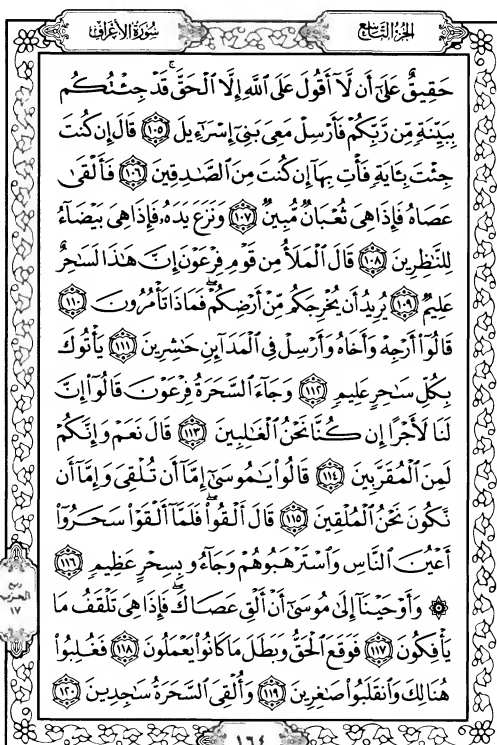 الجزء التاسع
سورة الأعراف
حَقِيقٌ عَلَىٰٓ أَن لَّآ أَقُولَ عَلَى ٱللَّهِ إِلَّا ٱلْحَقَّۚ قَدْ جِئْتُكُم
بِبَيِّنَةٖ مِّن رَّبِّكُمْ فَأَرْسِلْ مَعِىَ بَنِىٓ إِسْرَٰٓءِيلَ ١٠٥ قَالَ إِن كُنتَ
جِئْتَ بِـَٔايَةٖ فَأْتِ بِهَآ إِن كُنتَ مِنَ ٱلصَّٰدِقِينَ ١٠٦ فَأَلْقَىٰ
عَصَاهُ فَإِذَا هِىَ ثُعْبَانٌ مُّبِينٌ ١٠٧ وَنَزَعَ يَدَهُۥ فَإِذَا هِىَ بَيْضَآءُ
لِلنَّٰظِرِينَ ١٠٨ قَالَ ٱلْمَلَأُ مِن قَوْمِ فِرْعَوْنَ إِنَّ هَٰذَا لَسَٰحِرٌ
عَلِيمٌ ١٠٩ يُرِيدُ أَن يُخْرِجَكُم مِّنْ أَرْضِكُمْۖ فَمَاذَا تَأْمُرُونَ ١١٠
قَالُوٓا۟ أَرْجِهْ وَأَخَاهُ وَأَرْسِلْ فِى ٱلْمَدَآئِنِ حَٰشِرِينَ ١١١ يَأْتُوكَ
بِكُلِّ سَٰحِرٍ عَلِيمٖ ١١٢ وَجَآءَ ٱلسَّحَرَةُ فِرْعَوْنَ قَالُوٓا۟ إِنَّ
لَنَا لَأَجْرًا إِن كُنَّا نَحْنُ ٱلْغَٰلِبِينَ ١١٣ قَالَ نَعَمْ وَإِنَّكُمْ
لَمِنَ ٱلْمُقَرَّبِينَ ١١٤ قَالُوا۟ يَٰمُوسَىٰٓ إِمَّآ أَن تُلْقِىَ وَإِمَّآ أَن
نَّكُونَ نَحْنُ ٱلْمُلْقِينَ ١١٥ قَالَ أَلْقُوا۟ۖ فَلَمَّآ أَلْقَوْا۟ سَحَرُوٓا۟
أَعْيُنَ ٱلنَّاسِ وَٱسْتَرْهَبُوهُمْ وَجَآءُو بِسِحْرٍ عَظِيمٖ ١١٦
۞ وَأَوْحَيْنَآ إِلَىٰ مُوسَىٰٓ أَنْ أَلْقِ عَصَاكَۖ فَإِذَا هِىَ تَلْقَفُ مَا
يَأْفِكُونَ ١١٧ فَوَقَعَ ٱلْحَقُّ وَبَطَلَ مَا كَانُوا۟ يَعْمَلُونَ ١١٨ فَغُلِبُوا۟
هُنَالِكَ وَٱنقَلَبُوا۟ صَٰغِرِينَ ١١٩ وَأُلْقِىَ ٱلسَّحَرَةُ سَٰجِدِينَ ١٢٠
ربع
الحزب
١٧
١٦٤